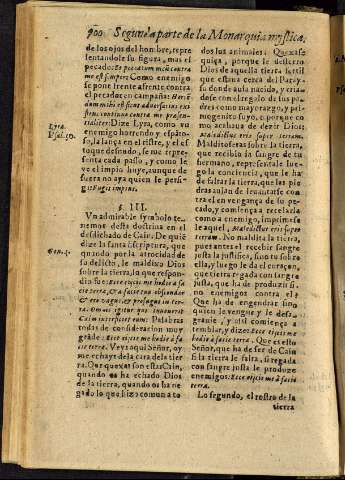 900 Segunda parte de la Monarquia mystica.
de los ojos del hombre, repre
sentandole su figura, mas el
pecado: Et peccatum meũ contra
me est semper: Como enemigo,
se pone frente a frente contra
el pecador en campaña:
tialiter: Dize Lyra, como vn
enemigo horrendo y espãto-
so, la lança en el ristre, y el es
toque desnudo, se me repre-
senta cada passo, y como le
ve el impio huye, aunque de
fuera no aya quien le persi-
ga: Fugit impius.
Lyra.
Psal. 50.
§. III.
Vn admirable symbolo te-
nemos desta doctrina en el
desdichado de Cain. De quiẽ
dize la santa Escriptura, que
quando por la atrocidad de
su delicto, le maldixo Dios
sobre la tierra, lo que respon-
dio fue: Ecce eijcis me hodie à fa
cie terræ, & à facie tua abscondar
& ero vagus, & profugus in ter-
ra. Omnis igitur qui inuenerit
Cain interficiet eum: Palabras
todas de consideracion muy
grãde: Ecce eijcis me hodie à fa
cie terræ. Veys aqui Señor, oy
me echays de la cara de la tier
ra. Que quexas son estas Cain,
quando os ha echado Dios
de la tierra, quando os ha ne-
gado lo que hizo comun a to
Gen. 4.
dos los animales? Quexase
quiça, porque le destierra
Dios de aquella tierra fertil
que estaua cerca del Paray-
so donde auia nacido, y cria
dose con el regalo de sus pa
dres como mayorazgo, y pri
mogenito suyo, ò porque co
mo acabaua de dezir Dios:
Maledictus eris super terram.
Maldito seras sobre la tierra,
que recibio la sangre de tu
hermano, representale lue-
go la conciencia, que le ha
de faltar la tierra, que las pie
dras auian de leuantarse con
tra el en vengança de su pe-
cado, y comiença a recelarla
como a enemigo, impresse
le aquel, Maledictus eris super
terram. No maldita la tierra,
pues antes el recebir sangre
justa la justifica, sino tu sobre
ella, y luego le da el coraçon,
que tierra regada con sangre
justa, que ha de produzir si-
no enemigos contra el?
Que ha de engendrar sino
quien le vengue y le dessa-
grauie, y assi comiença a
temblar, y dize: Ecce eijcis me à
facie terræ. Que es esto
Señor, que ha de ser de Cain
si la tierra le falta, si regada
con sangre justa le produze
enemigos: Ecce eijcis me à facie
terræ.
Lo segundo, el rostro de la
tierra